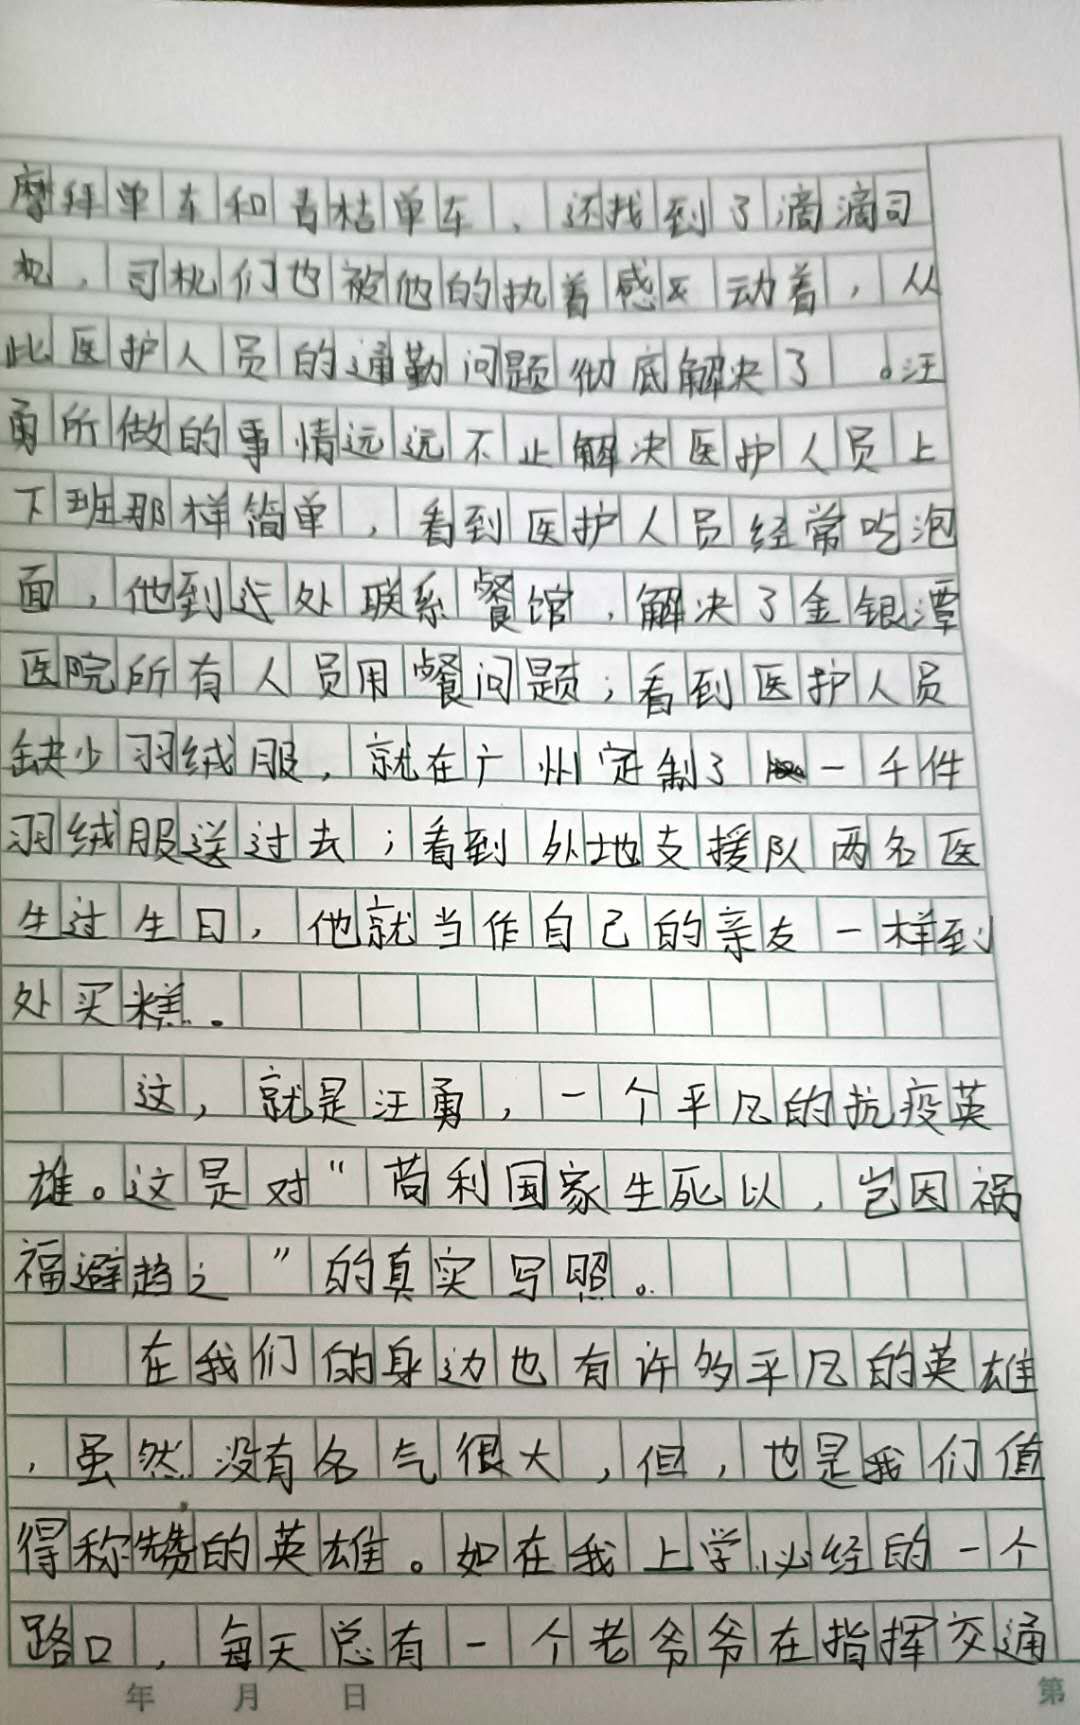 摩拜单车和青桔单车，还找到了滴滴司
机，司机们也被他的执着感动着，从
此医护人员的通勤问题彻底解决了。汪
勇所做的事情远远不止解决医护人员上
下班那样简单，看到医护人员经常吃泡
面，他到远处联系餐馆，解决了金银潭
医院所有人员用餐问题；看到医护人员
缺少羽绒服，就在广州定制了一千件
羽绒服送过去；看到外地支援队两名医
生过生日，他就当作自己的亲友一样到
处买糕。
这，就是汪勇，一个平凡的抗疫英
雄。这是对“苟利国家生死以，岂因祸
福避趋之”的真实写照。
在我们的身边也有许多平凡的英雄
，虽然没有名气很大，但，也是我们值
得称赞的英雄。如在我上学必经的一个
路口，每天总有一个老爷爷在指挥交通
年 月 日 第